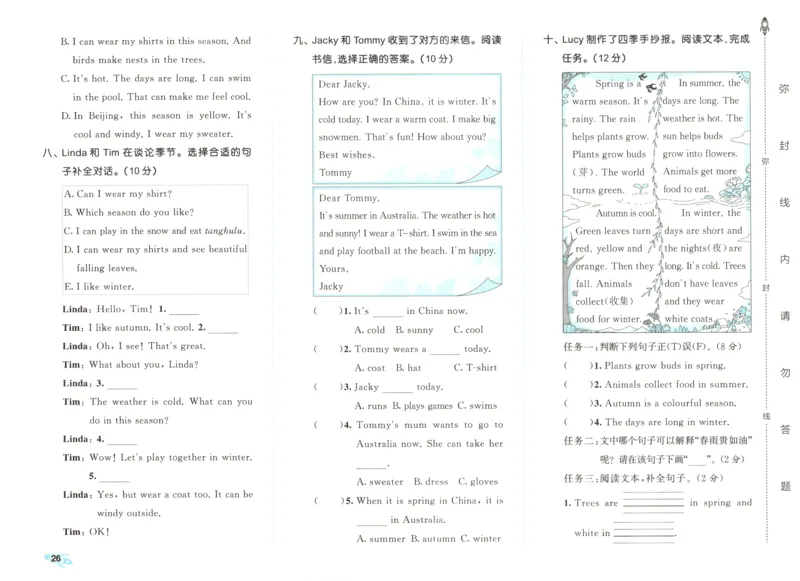 B. I can wear my shirts in this season. And
birds make nests in the trees.
C. It's hot. The days are long. I can swim
in the pool. That can make me feel cool.
D. In Beijing, this season is yellow. It's
cool and windy. I wear my sweater.
八、Linda 和 Tim 在谈论季节。选择合适的句
子补全对话。(10 分)
A. Can I wear my shirt?
B. Which season do you like?
C. I can play in the snow and eat tanghulu.
D. I can wear my shirts and see beautiful
falling leaves.
E. I like winter.
Linda: Hello, Tim! 1. ______
Tim: I like autumn. It's cool. 2. ______
Linda: Oh, I see! That's great.
Tim: What about you, Linda?
Linda: 3. ______
Tim: The weather is cold. What can you
do in this season?
Linda: 4. ______
Tim: Wow! Let's play together in winter.
5. ______
Linda: Yes, but wear a coat too. It can be
windy outside.
Tim: OK!
26
九、Jacky 和 Tommy 收到了对方的来信。阅读
书信,选择正确的答案。(10 分)
Dear Jacky,
How are you? In China, it is winter. It's
cold today. I wear a warm coat. I make big
snowmen. That's fun! How about you?
Best wishes,
Tommy
Dear Tommy,
It's summer in Australia. The weather is hot
and sunny! I wear a T-shirt. I swim in the sea
and play football at the beach. I'm happy.
Yours,
Jacky
( )1. It's ______ in China now.
A. cold B. sunny C. cool
( )2. Tommy wears a ______ today.
A. coat B. hat C. T-shirt
( )3. Jacky ______ today.
A. runs B. plays games C. swims
( )4. Tommy's mum wants to go to
Australia now. She can take her
______.
A. sweater B. dress C. gloves
( )5. When it is spring in China, it is
______ in Australia.
A. summer B. autumn C. winter
十、Lucy 制作了四季手抄报。阅读文本,完成
任务。(12 分)
Spring is a
warm season. It's
rainy. The rain
helps plants grow.
Plants grow buds
(芽). The world
turns green.
In summer, the
days are long. The
weather is hot. The
sun helps buds
grow into flowers.
Animals get more
food to eat.
Autumn is cool.
Green leaves turn
red, yellow and
orange. Then they
fall. Animals
collect(收集)
food for winter.
In winter, the
days are short and
the nights(夜) are
long. It's cold. Trees
don't have leaves
and they wear
white coats.
任务一:判断下列句子正(T)误(F)。(8 分)
( )1. Plants grow buds in spring.
( )2. Animals collect food in summer.
( )3. Autumn is a colourful season.
( )4. The days are long in winter.
任务二:文中哪个句子可以解释“春雨贵如油”
呢? 请在该句子下画“___”。(2 分)
任务三:阅读文本,补全句子。(2 分)
1. Trees are ______ in spring and
white in ______.
弥
封
线
内
请
勿
答
题
弥
封
线